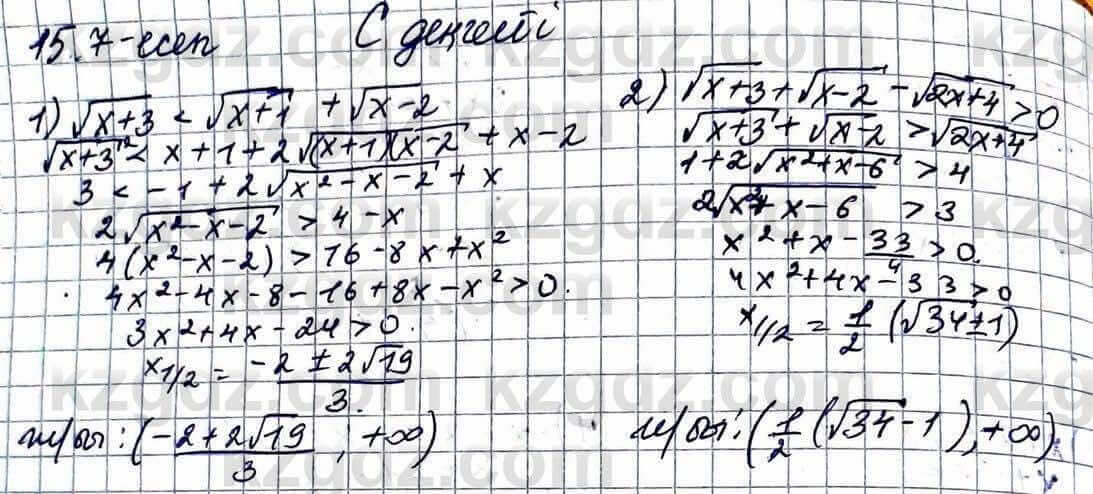 15.7-есеп
С деңгейі
1) √(x+3) < √(x+1) + √(x-2)
√(x+3)² < x+1+2√((x+1)(x-2)) + x-2
3 < -1 + 2√(x²-x-2) + x
2√(x²-x-2) > 4-x
4(x²-x-2) > 16-8x+x²
4x²-4x-8-16+8x-x² > 0.
3x²+4x-24 > 0.
x1/2 = (-2 ± 2√19)/3.
ж/бы: ((-2+2√19)/3, +∞)
2) √(x+3) + √(x-2) - √(2x+4) > 0
√(x+3) + √(x-2) > √(2x+4)
1+2√(x²+x-6) > 4
2√(x²+x-6) > 3
x²+x-33/4 > 0.
4x²+4x-33 > 0
x1/2 = 1/2 (√34±1)
ж/бы: (1/2 (√34-1), +∞)
kzgdz.com kzgdz.com kzgdz.com